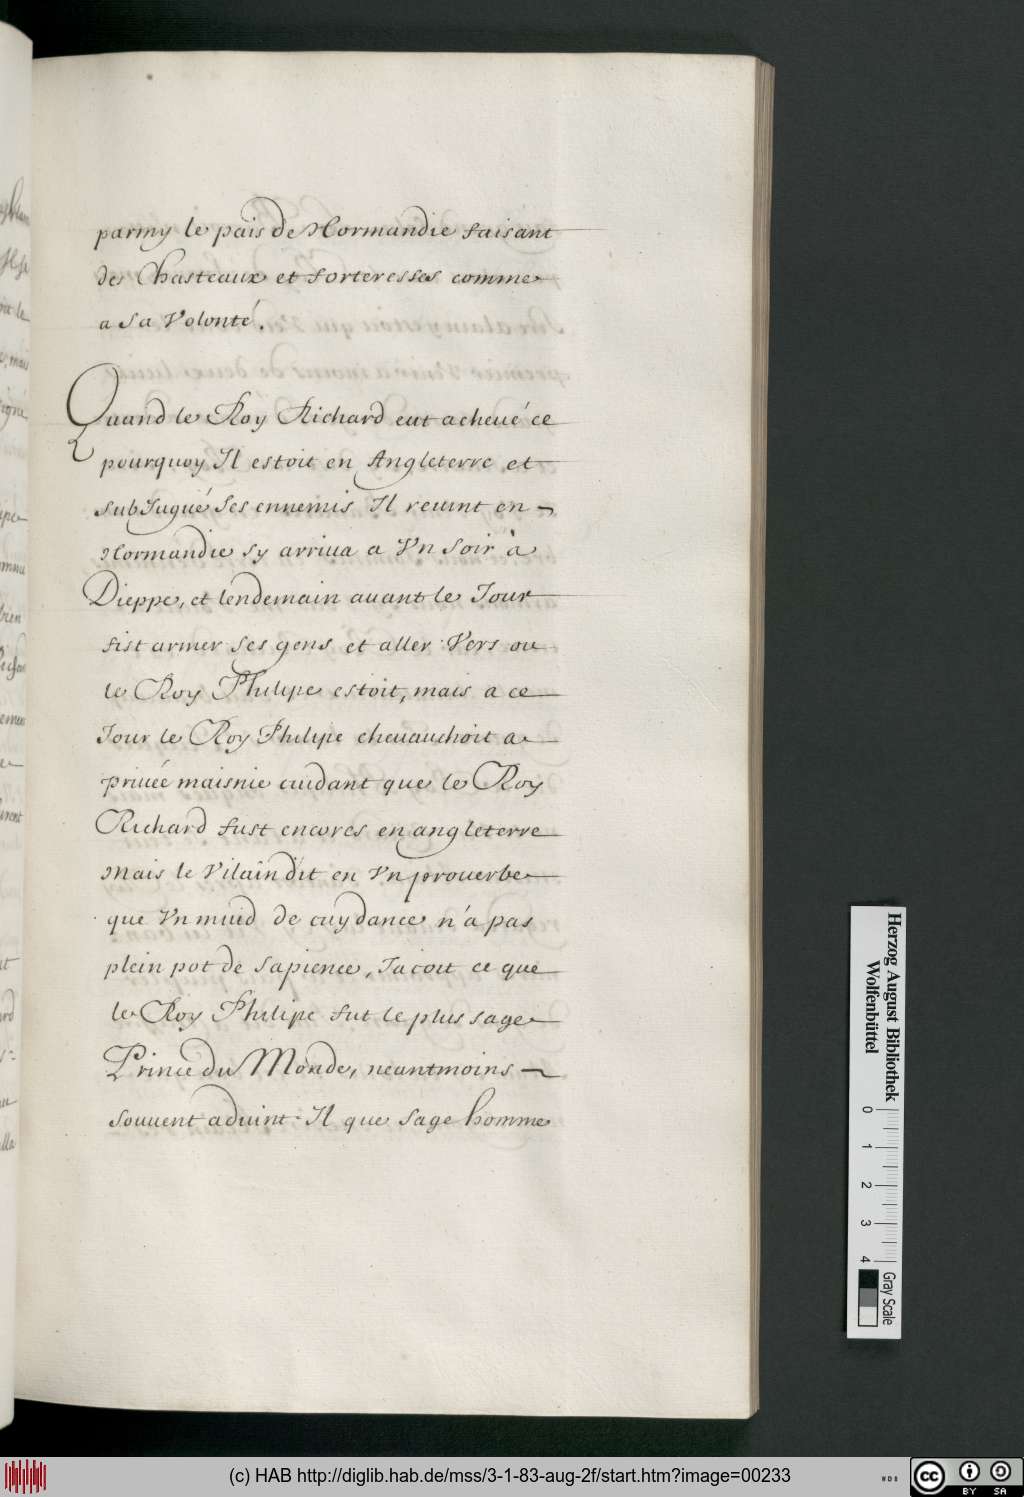 parmy le païs de Normandie faisant
des Chasteaux et forteresses comme
a Sa Volonté.
Quand le Roy Richard eut acheué ce
pourquoy Il estoit en Angleterre et
subJugué Ses ennemis Il reuint en
Normandie sy arriua a Vn Soir à
Dieppe, et lendemain auant le Jour
fist armer Ses gens et aller Vers ou
le Roy Philipe estoit, mais a ce
Jour le Roy Philipe cheuauchoit a
priuée maisnie cuidant que le Roy
Richard fust encores en angleterre
Mais le Vilain dit en Vn prouerbe
que Vn muid de cuydance n'a pas
plein pot de Sapience, Jacoit ce que
le Roy Philipe fut le plus sage
Prince du Monde, neantmoins
souuent aduint-Il que Sage homme
Herzog August Bibliothek
Wolfenbüttel
0 1 2 3 4
Gray Scale
(c) HAB http://diglib.hab.de/mss/3-1-83-aug-2f/start.htm?image=00233
cc BY SA